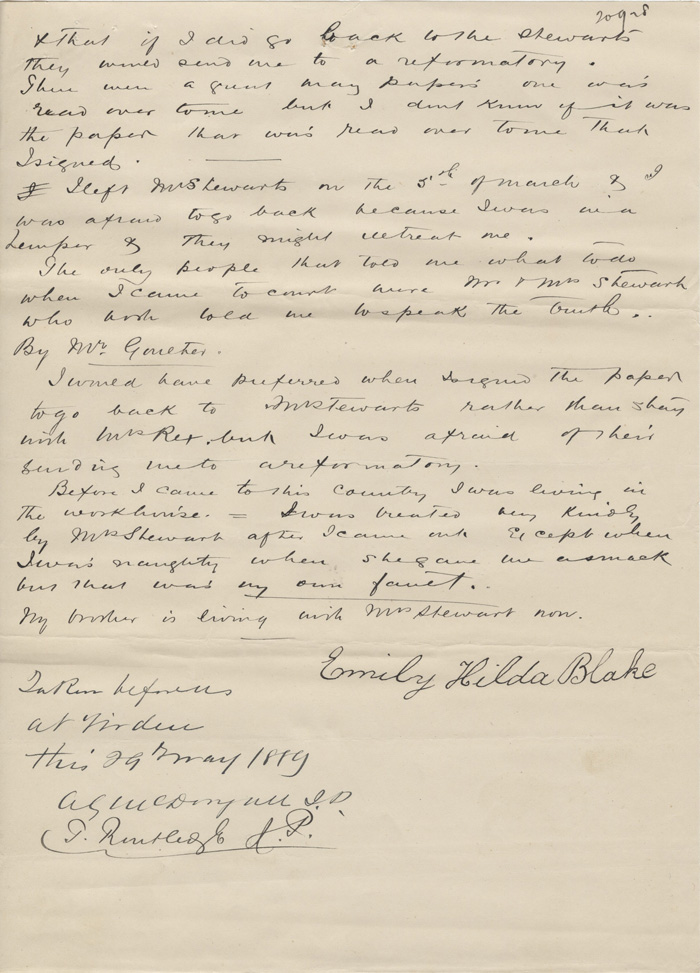 & that if I did go back to the Stewarts
they would send me to a reformatory.
There were a great many papers one was
read over to me but I dont know if it was
the paper that was read over to me that
I signed.
I left Mrs Stewarts on the 5th of march & I
was afraid to go back because I was in a
temper & they might illtreat me.
The only people that told me what to do
when I came to court were Mr & Mrs Stewart
who both told me to speak the truth..
By Mr.
I would have preferred when I signed the paper
to go back to Mrs Stewarts rather than stay
with Mrs Rex, but I was afraid of their
sending me to a reformatory.
Before I came to this country I was living in
the workhouse. = I was treated very kindly
by Mrs Stewart after I came out Except when
I was naughty when she gave me a smack
but that was my own fault..
My brother is living with Mrs Stewart now.
Emily Hilda Blake
Taken before us
at Virden
this 29th May 1889
J.P.
T. Routledge J.P.